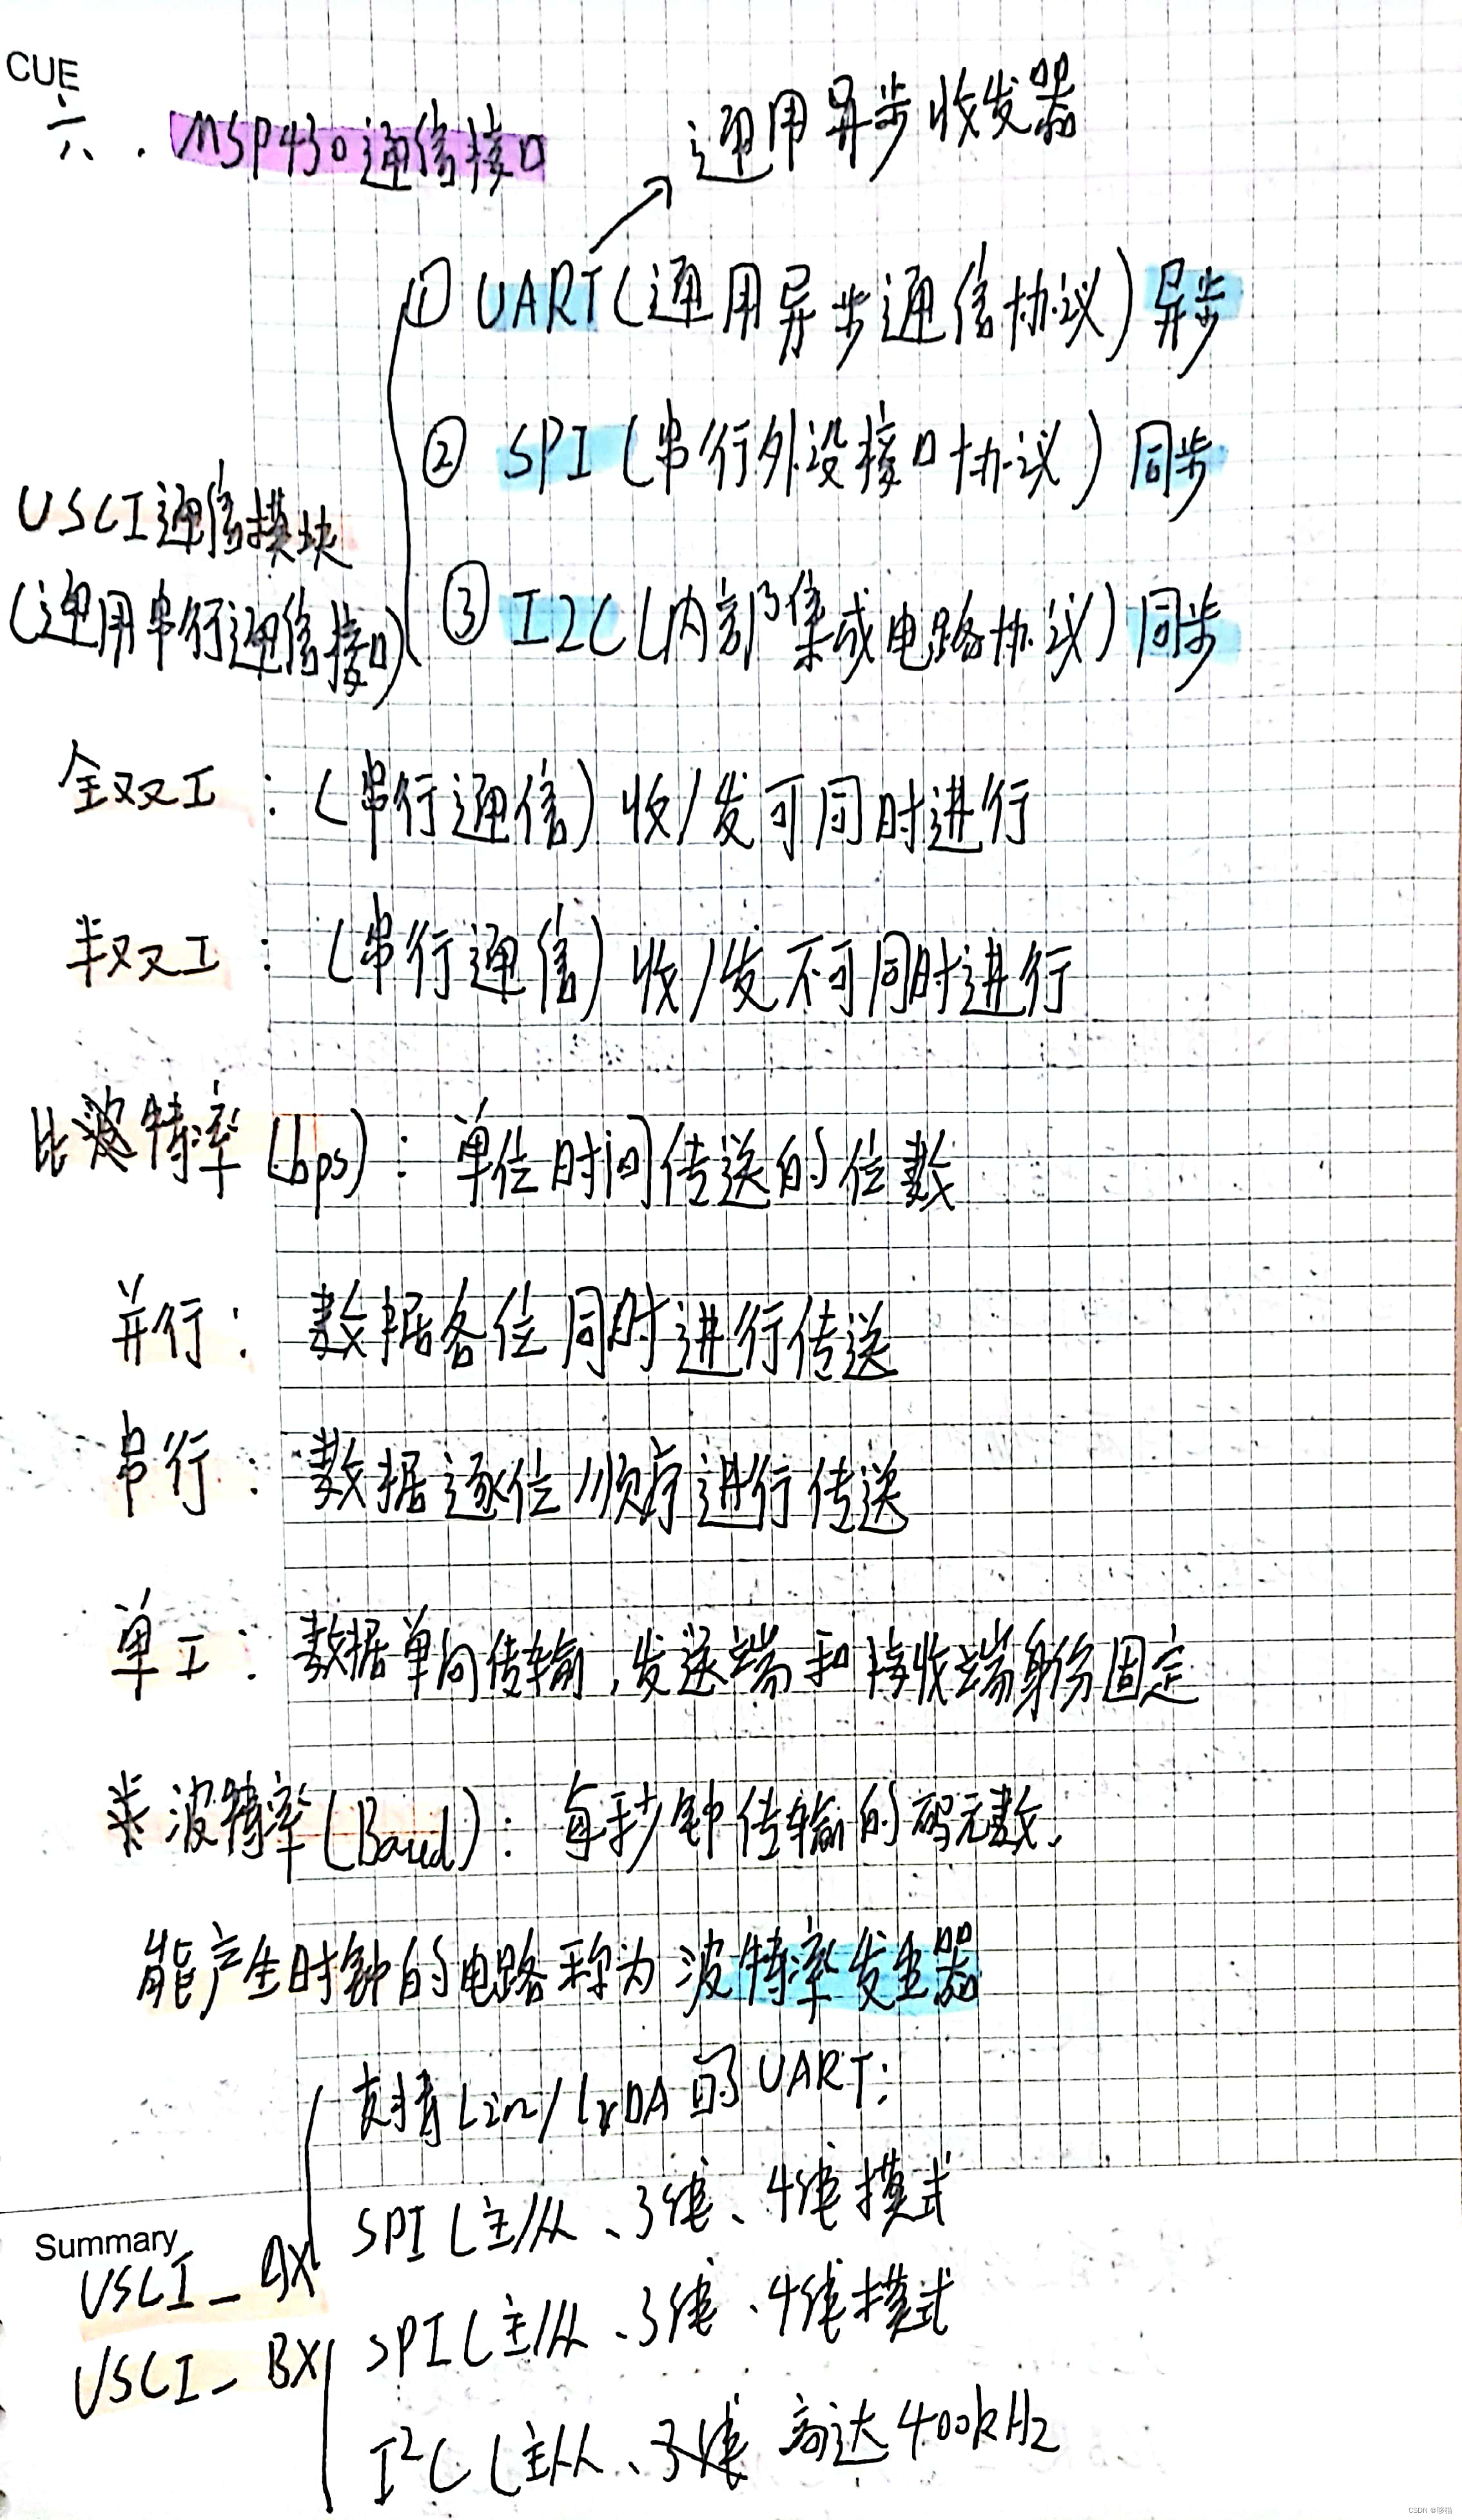 CUE
六. MSP430通信接口
通用异步收发器
① UART(通用异步通信协议) 异步
② SPI(串行外设接口协议) 同步
USCI通信模块
(通用串行通信接口)
③ I2C(内部集成电路协议) 同步
全双工:(串行通信) 收/发可同时进行
半双工:(串行通信) 收/发不可同时进行
比特率(bps): 单位时间传送的位数
并行: 数据各位同时进行传送
串行: 数据逐位顺序进行传送
单工: 数据单向传输,发送端和接收端身份固定
※ 波特率(Baud): 每秒钟传输的码元数.
能产生时钟的电路称为波特率发生器
支持Lin/IrDA的UART;
SPI(主/从、3线、4线模式
Summary
USCI_AX
SPI(主/从、3线、4线模式
USCI_BX
I²C(主从、3线 高达400kHz
CSDN @哆猫